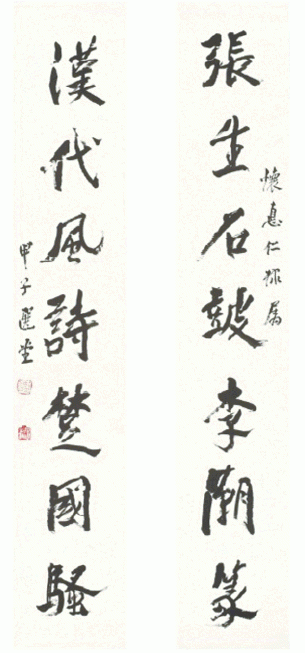 懷惠仁棣属
張生石鼓李潮篆
漢代風詩楚國騷
甲子選堂